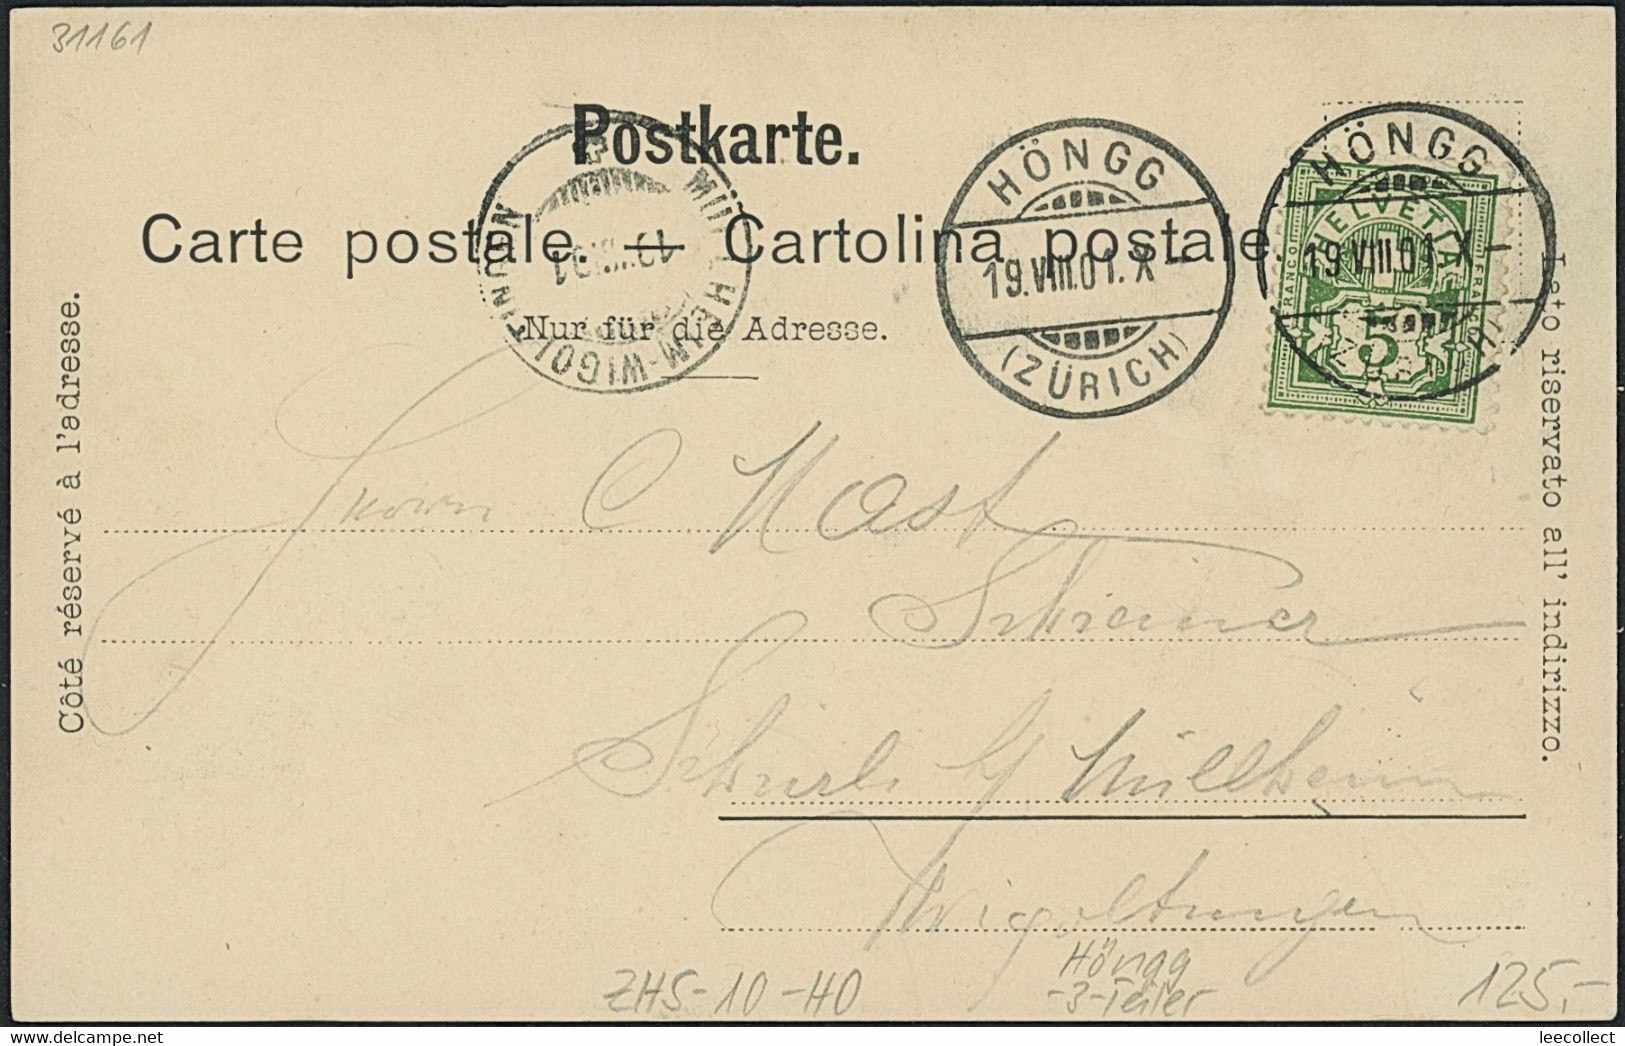 31161
Postkarte.
Carte postale. — Cartolina postale.
Nur für die Adresse.
Côté réservé à l'adresse.
Lato riservato all' indirizzo.
MÜLLHEIM-WIGOLTINGEN
HÖNGG
19.VIII.01.X-
(ZÜRICH)
HÖNGG
19.VIII.01.X-
HELVETIA
FRANCO
FRANCO
5
Herrn C Nast
Schreiner
Müllheim
Wigoltingen
ZHS-10-HO
Höngg
-3-Teiler
125,-
leecollect